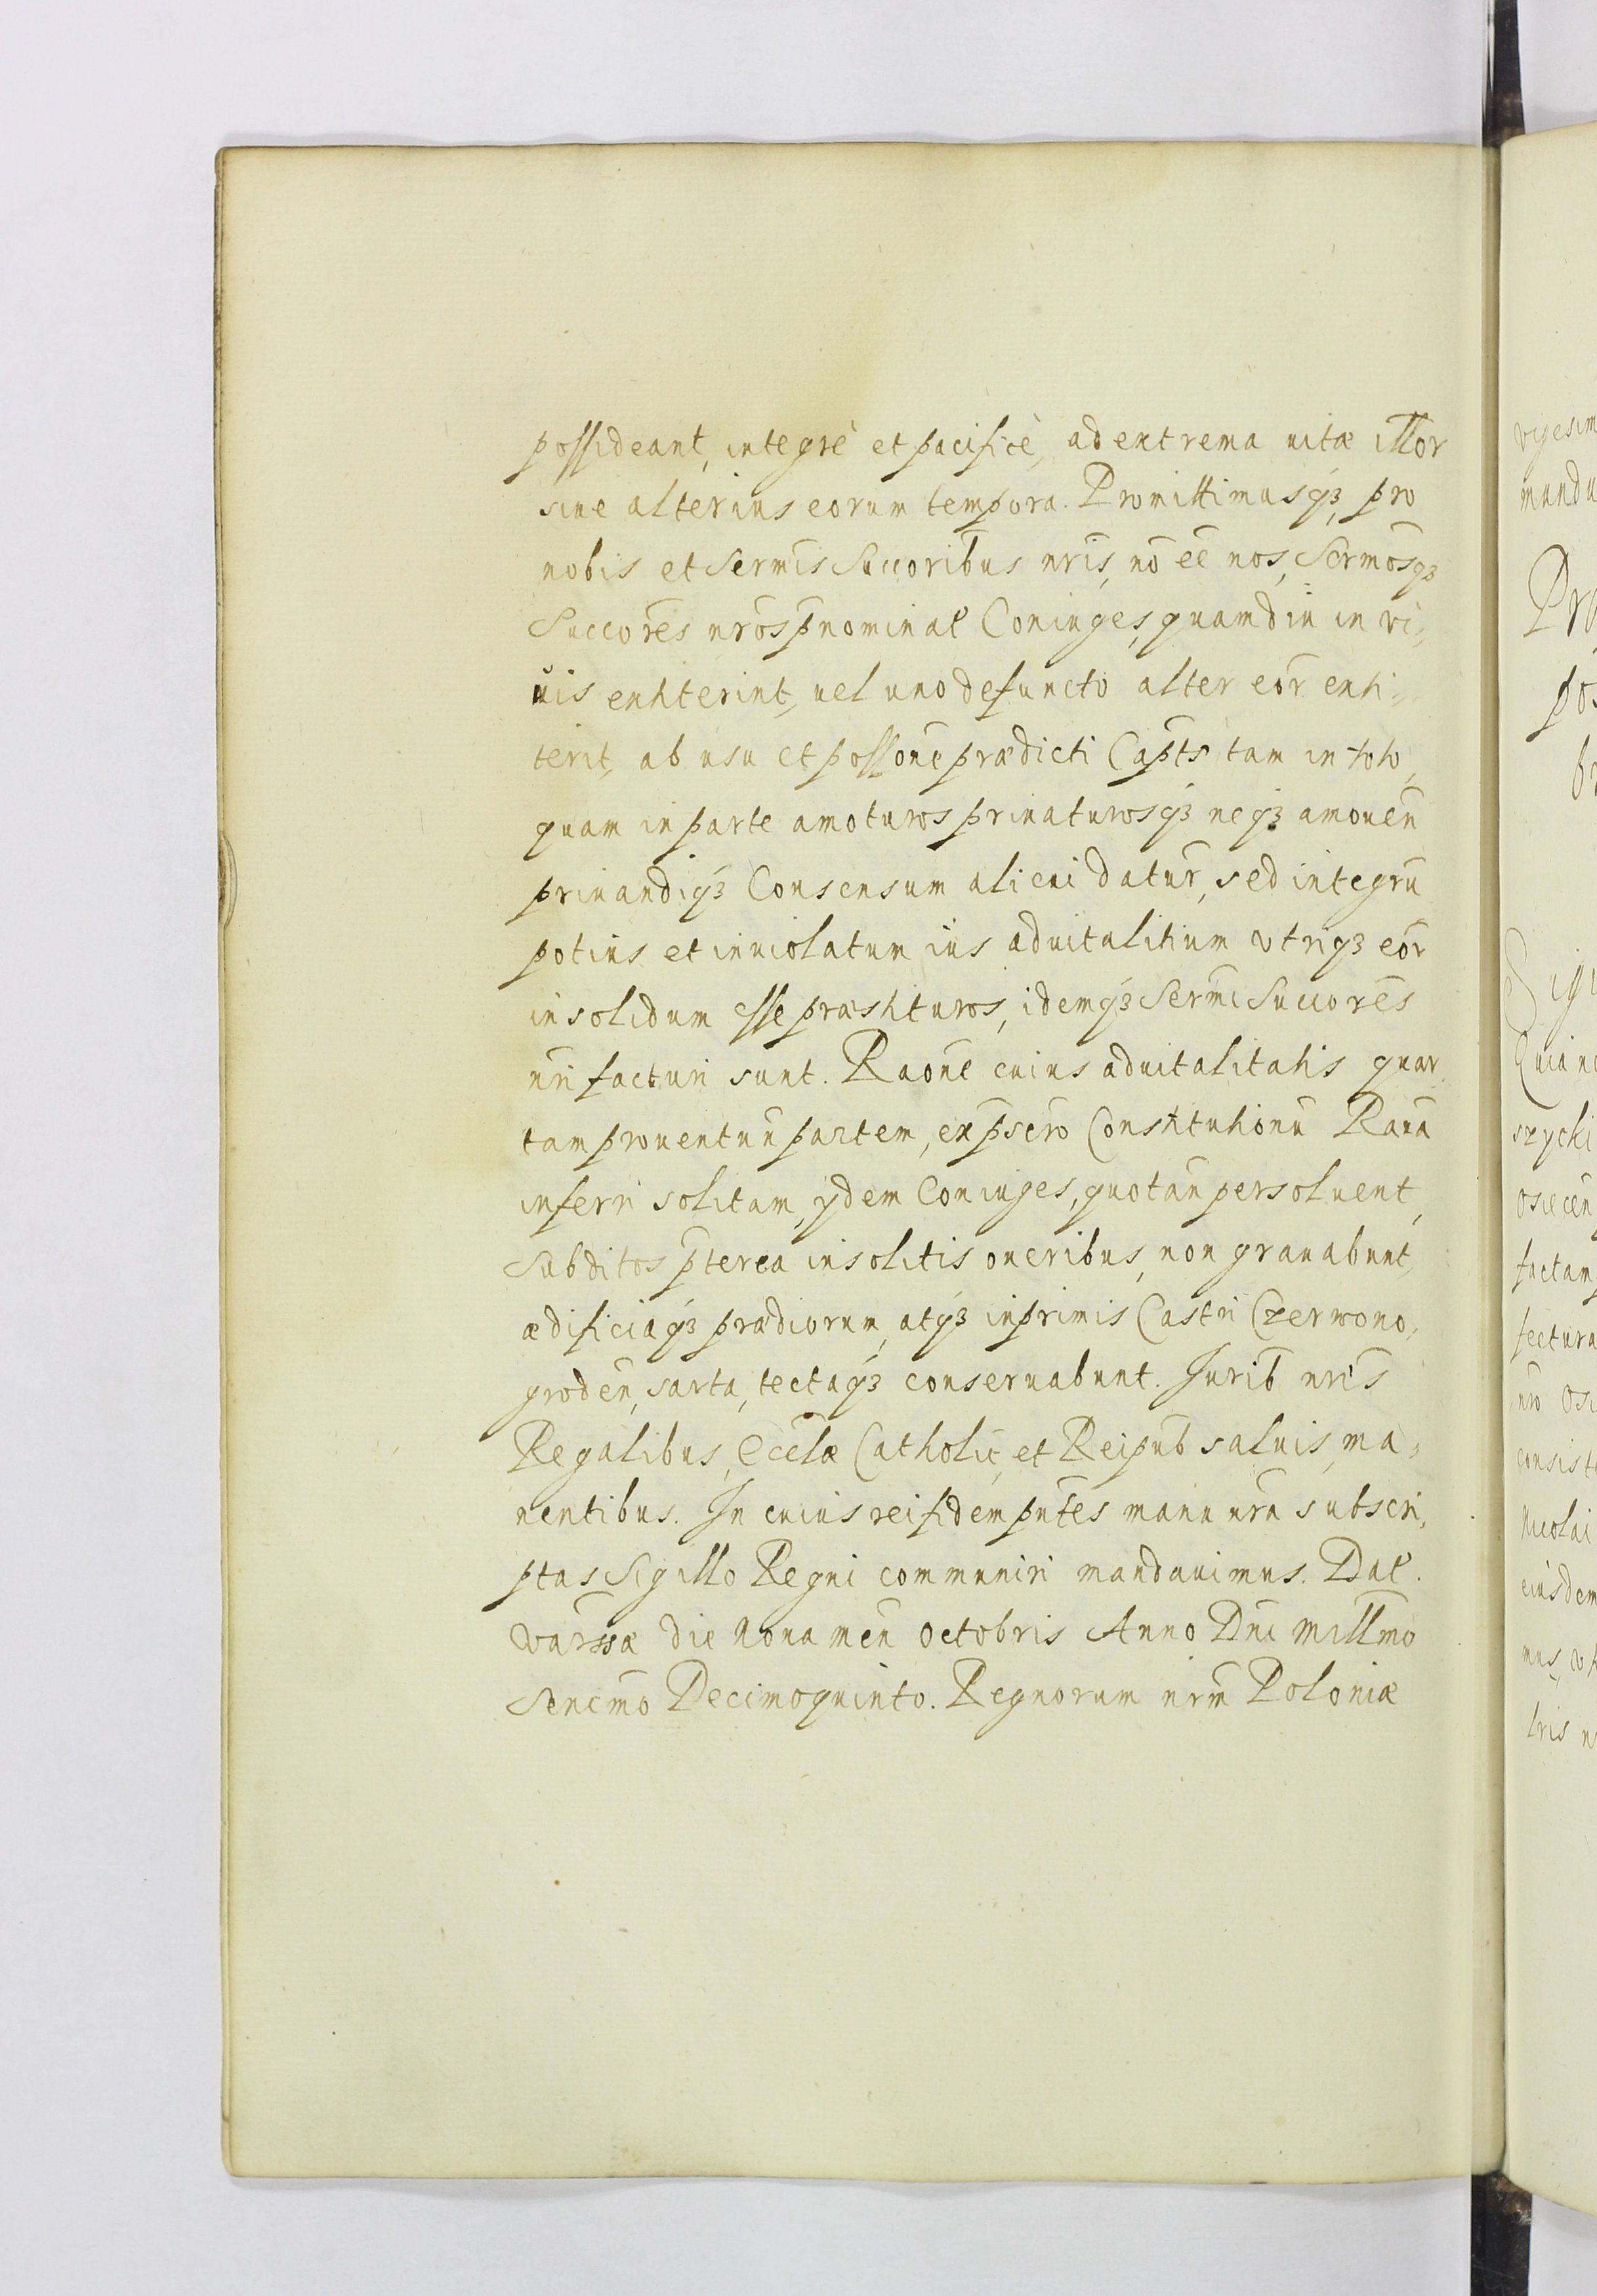 possideant, integrè et pacificè, ad extrema uitæ illor̄
siue alterius eorum tempora. Promittimusqȝ, pro
nobis et Serm̄is Succoribus nr̄is, nō eē nos, Sermōsqȝ
Succorēs nrōs p̄nominat Coniuges, quamdiu in vi„
uis extiterint, uel uno defuncto alter eōr exti„
terit, ab usu et possōne prædicti Cap̄ts tam in toto,
quam in parte amoturos priuaturosqȝ neqȝ amouen̄
priuandiqȝ Consensum alicui datur̄, sed integrū
potius et inuiolatum ius aduitalitium vtriqȝ eōr
in solidum esse præstituros, idemqȝ Serm̄i Succorēs
nr̄i facturi sunt. Raōne cuius aduitalitatis quar„
tam prouentuū partem, ex p̄scr̄o Constitutionū Raua
inferri solitam, ydem Coniuges, quotan̄ persoluent,
Subditos p̄terea insolitis oneribus, non grauabunt,
ædificiaqȝ prædiorum, atqȝ inprimis Castri Czerwono„
groden̄, sarta, tectaqȝ conseruabunt. Jurib̄ nr̄is
Regalibus, Eccl̄æ Catholic̄, et Reipub̄ saluis, ma„
nentibus. In cuius rei fidem pn̄tes manu nr̄a subscri„
ptas Sigillo Regni communiri mandauimus. Dat.
Varssæ die Nona men̄ Octobris Anno Dn̄i Millm̄o
Sencm̄o Decimoquinto. Regnorum nrm̄ Poloniæ